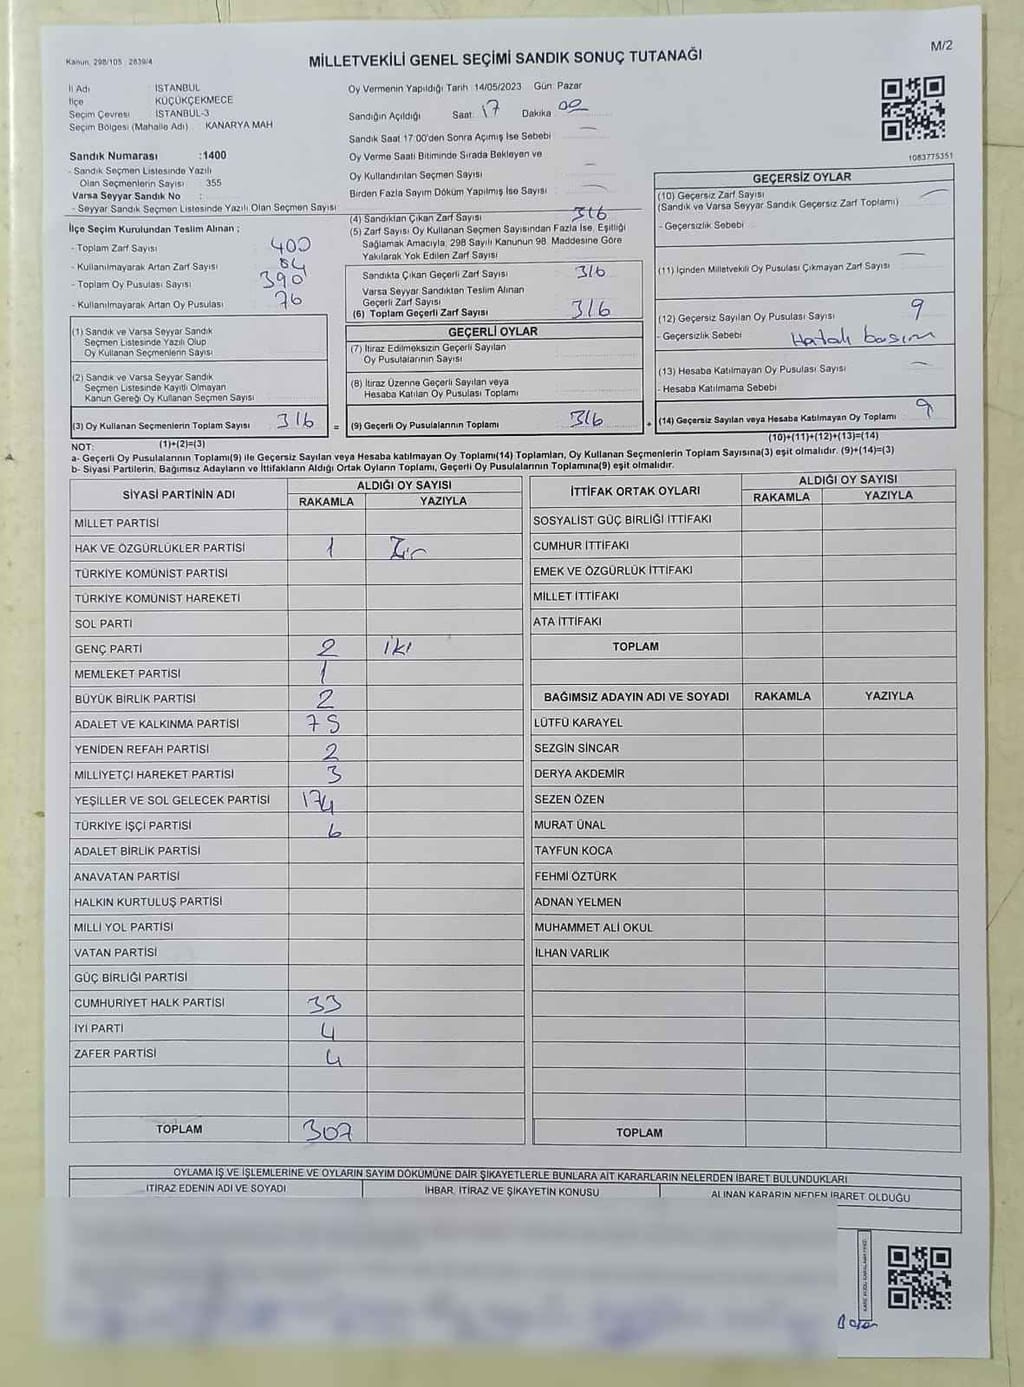 Kanun, 298/105 2839/4
MİLLETVEKİLİ GENEL SEÇİMİ SANDIK SONUÇ TUTANAĞI
M/2
İl Adı İSTANBUL
İlçe KÜÇÜKÇEKMECE
Seçim Çevresi İSTANBUL-3
Seçim Bölgesi (Mahalle Adı) KANARYA MAH
Sandık Numarası :1400
- Sandık Seçmen Listesinde Yazılı
Olan Seçmenlerin Sayısı 355
Varsa Seyyar Sandık No :
- Seyyar Sandık Seçmen Listesinde Yazılı Olan Seçmen Sayısı
Oy Vermenin Yapıldığı Tarih 14/05/2023 Gün: Pazar
Sandığın Açıldığı Saat 17 Dakika 00
Sandık Saat 17:00'den Sonra Açılmış İse Sebebi
Oy Verme Saati Bitiminde Sırada Bekleyen ve
Oy Kullandırılan Seçmen Sayısı
Birden Fazla Sayım Döküm Yapılmış İse Sayısı
1083775351
İlçe Seçim Kurulundan Teslim Alınan ;
- Toplam Zarf Sayısı 400
- Kullanılmayarak Artan Zarf Sayısı 84
- Toplam Oy Pusulası Sayısı 390
- Kullanılmayarak Artan Oy Pusulası 76
(1) Sandık ve Varsa Seyyar Sandık
Seçmen Listesinde Yazılı Olup
Oy Kullanan Seçmenlerin Sayısı
(2) Sandık ve Varsa Seyyar Sandık
Seçmen Listesinde Kayıtlı Olmayan
Kanun Gereği Oy Kullanan Seçmen Sayısı
(3) Oy Kullanan Seçmenlerin Toplam Sayısı 316 =
(1)+(2)=(3)
(4) Sandıktan Çıkan Zarf Sayısı 316
(5) Zarf Sayısı Oy Kullanan Seçmen Sayısından Fazla İse, Eşitliği
Sağlamak Amacıyla, 298 Sayılı Kanunun 98. Maddesine Göre
Yakılarak Yok Edilen Zarf Sayısı
Sandıkta Çıkan Geçerli Zarf Sayısı 316
Varsa Seyyar Sandıktan Teslim Alınan
Geçerli Zarf Sayısı
(6) Toplam Geçerli Zarf Sayısı 316
GEÇERLİ OYLAR
(7) İtiraz Edilmeksizin Geçerli Sayılan
Oy Pusulalarının Sayısı
(8) İtiraz Üzerine Geçerli Sayılan veya
Hesaba Katılan Oy Pusulası Toplamı
(9) Geçerli Oy Pusulalarının Toplamı 316 +
GEÇERSİZ OYLAR
(10) Geçersiz Zarf Sayısı
(Sandık ve Varsa Seyyar Sandık Geçersiz Zarf Toplamı)
- Geçersizlik Sebebi
(11) İçinden Milletvekili Oy Pusulası Çıkmayan Zarf Sayısı
(12) Geçersiz Sayılan Oy Pusulası Sayısı 9
- Geçersizlik Sebebi Hatalı basım
(13) Hesaba Katılmayan Oy Pusulası Sayısı
- Hesaba Katılmama Sebebi
(14) Geçersiz Sayılan veya Hesaba Katılmayan Oy Toplamı 9
(10)+(11)+(12)+(13)=(14)
NOT:
a- Geçerli Oy Pusulalarının Toplamı(9) ile Geçersiz Sayılan veya Hesaba katılmayan Oy Toplamı(14) Toplamları, Oy Kullanan Seçmenlerin Toplam Sayısına(3) eşit olmalıdır. (9)+(14)=(3)
b- Siyasi Partilerin, Bağımsız Adayların ve İttifakların Aldığı Ortak Oyların Toplamı, Geçerli Oy Pusulalarının Toplamına(9) eşit olmalıdır.
SİYASİ PARTİNİN ADI ALDIĞI OY SAYISI
RAKAMLA YAZIYLA
MİLLET PARTİSİ
HAK VE ÖZGÜRLÜKLER PARTİSİ 1 Bir
TÜRKİYE KOMÜNİST PARTİSİ
TÜRKİYE KOMÜNİST HAREKETİ
SOL PARTİ
GENÇ PARTİ 2 iki
MEMLEKET PARTİSİ 1
BÜYÜK BİRLİK PARTİSİ 2
ADALET VE KALKINMA PARTİSİ 75
YENİDEN REFAH PARTİSİ 2
MİLLİYETÇİ HAREKET PARTİSİ 3
YEŞİLLER VE SOL GELECEK PARTİSİ 174
TÜRKİYE İŞÇİ PARTİSİ 6
ADALET BİRLİK PARTİSİ
ANAVATAN PARTİSİ
HALKIN KURTULUŞ PARTİSİ
MİLLİ YOL PARTİSİ
VATAN PARTİSİ
GÜÇ BİRLİĞİ PARTİSİ
CUMHURİYET HALK PARTİSİ 33
İYİ PARTİ 4
ZAFER PARTİSİ 4
TOPLAM 307
İTTİFAK ORTAK OYLARI ALDIĞI OY SAYISI
RAKAMLA YAZIYLA
SOSYALİST GÜÇ BİRLİĞİ İTTİFAKI
CUMHUR İTTİFAKI
EMEK VE ÖZGÜRLÜK İTTİFAKI
MİLLET İTTİFAKI
ATA İTTİFAKI
TOPLAM
BAĞIMSIZ ADAYIN ADI VE SOYADI RAKAMLA YAZIYLA
LÜTFÜ KARAYEL
SEZGİN SİNCAR
DERYA AKDEMİR
SEZEN ÖZEN
MURAT ÜNAL
TAYFUN KOCA
FEHMİ ÖZTÜRK
ADNAN YELMEN
MUHAMMET ALİ OKUL
İLHAN VARLIK
TOPLAM
OYLAMA İŞ VE İŞLEMLERİNE VE OYLARIN SAYIM DÖKÜMÜNE DAİR ŞİKAYETLERLE BUNLARA AİT KARARLARIN NELERDEN İBARET BULUNDUKLARI
İTİRAZ EDENİN ADI VE SOYADI İHBAR, İTİRAZ VE ŞİKAYETİN KONUSU ALINAN KARARIN NEDEN İBARET OLDUĞU